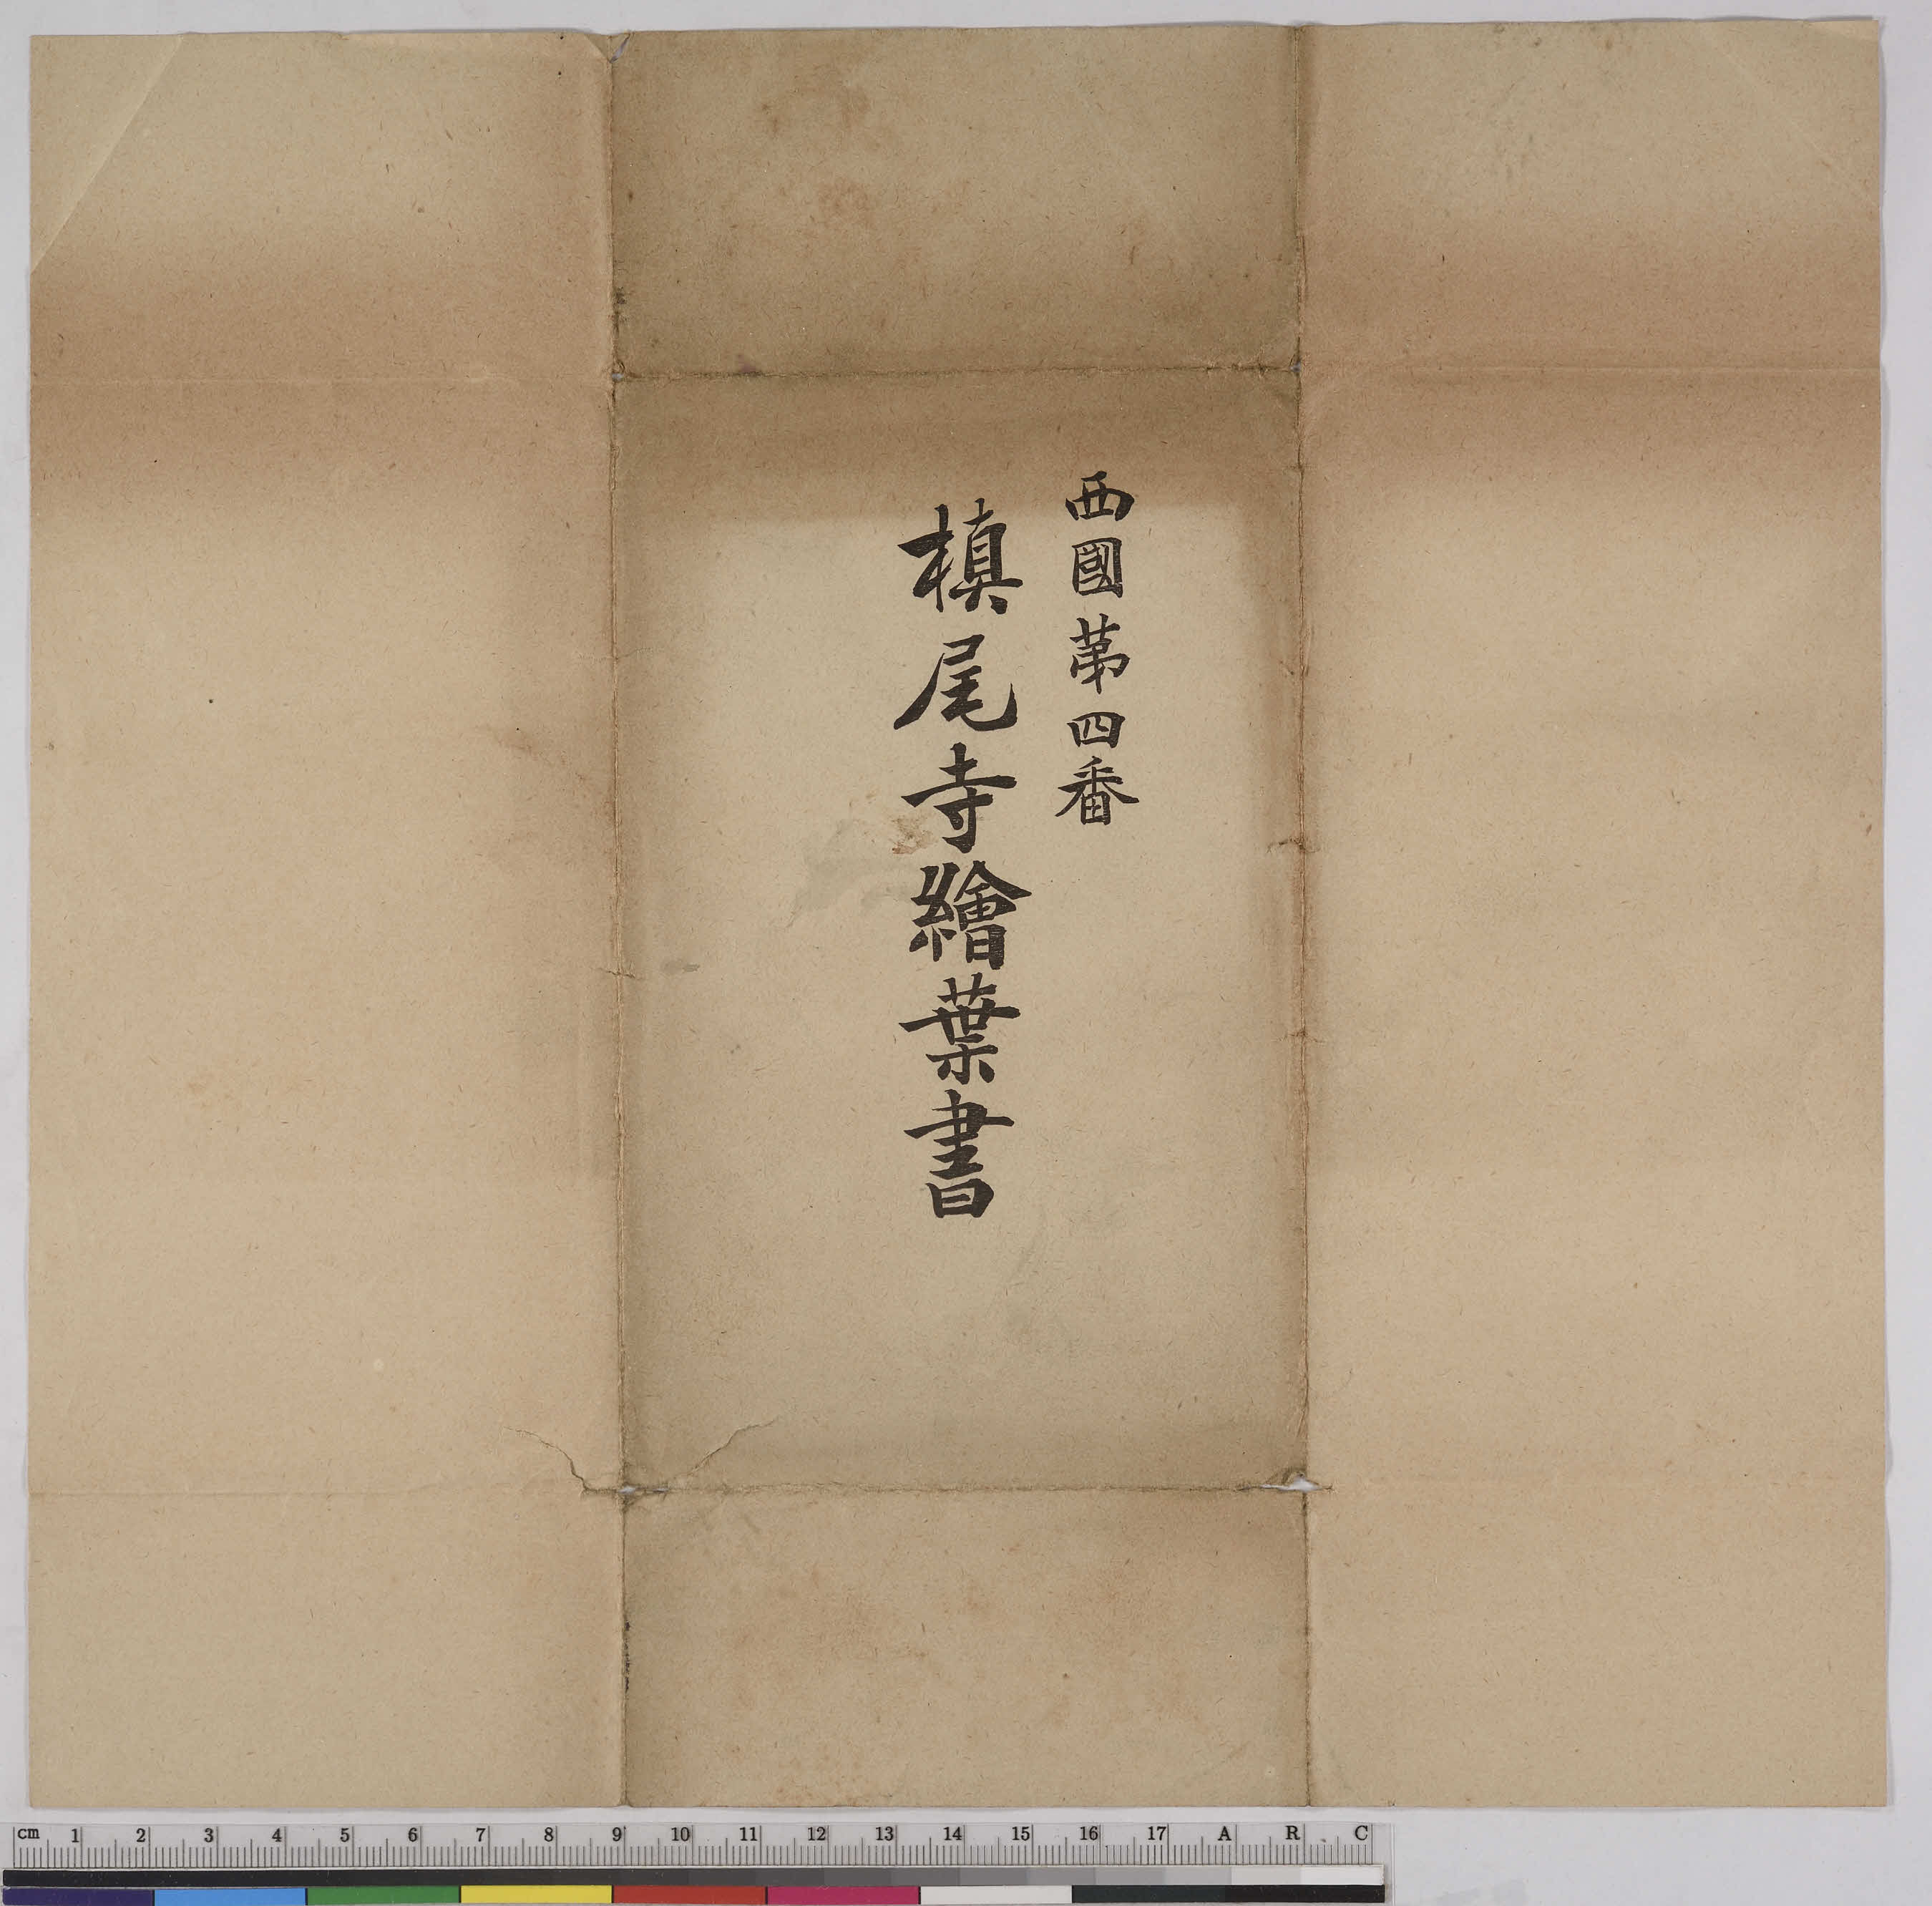 西國第四番
槙尾寺繪葉書
cm 1 2 3 4 5 6 7 8 9 10 11 12 13 14 15 16 17 A R C